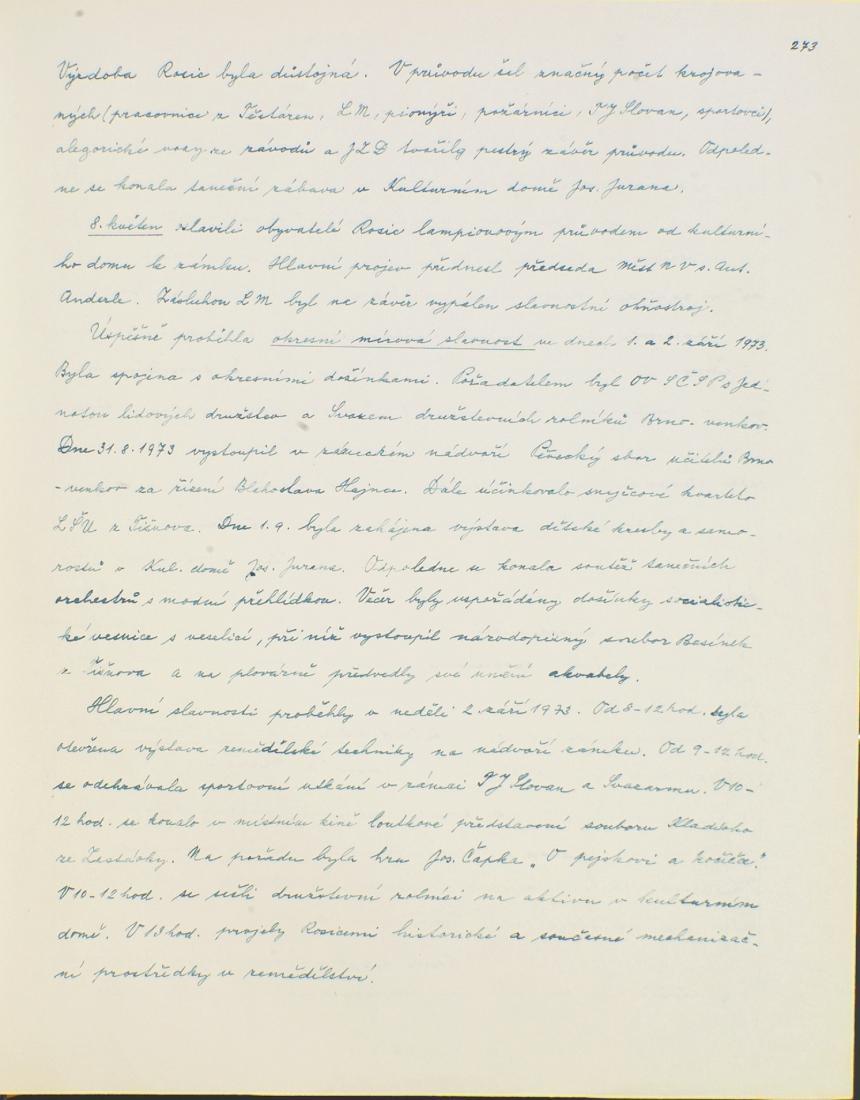 273
Výzdoba Rosic byla důstojná. V průvodu šel značný počet krojova-
ných (pracovnice z Těstáren, LM, pionýři, požárníci, TJ Slovan, sportovci),
alegorické vozy ze závodů a JZD tvořily pestrý závěr průvodu. Odpoled-
ne se konala taneční zábava v Kulturním domě Jos. Jurana.
8. květen slavili obyvatelé Rosic lampionovým průvodem od kulturní-
ho domu k zámku. Hlavní projev přednesl předseda Měst N V s. Ant.
Anderle. Zásluhou LM byl na závěr vypálen slavnostní ohňostroj.
Úspěšně proběhla okresní mírová slavnost ve dnech 1. a 2. září 1973.
Byla spojena s okresními dožínkami. Pořadatelem byl OV SČSP s Jed-
notou lidových družstev a Svazem družstevních rolníků Brno-venkov.
Dne 31.8.1973 vystoupil v zámeckém nádvoří Pěvecký sbor učitelů Brno
-venkov za řízení Blahoslava Hajnce. Dále účinkovalo smyčcové kvarteto
LŠU z Tišnova. Dne 1.9. byla zahájena výstava dětské kresby a samo-
rostů v Kul. domě Jos. Jurana. Odpoledne se konala soutěž tanečních
orchestrů s modní přehlídkou. Večer byly uspořádány dožínky socialistic-
ké vesnice s veselicí, při níž vystoupil národopisný soubor Besének
z Tišnova a na plovárně předvedly své umění akvabely.
Hlavní slavnosti proběhly v neděli 2. září 1973. Od 8-12 hod. byla
otevřena výstava zemědělské techniky na nádvoří zámku. Od 9-12 hod.
se odehrávala sportovní utkání v rámci TJ Slovan a Svazarmu. V 10-
12 hod. se konalo v místním kině loutkové představení souboru Kladivko
ze Zastávky. Na pořadu byla hra Jos. Čapka „O pejskovi a kočičce".
V 10-12 hod. se sešli družstevní rolníci na aktivu v kulturním
domě. V 13 hod. projely Rosicemi historické a současné mechanizač-
ní prostředky v zemědělství.